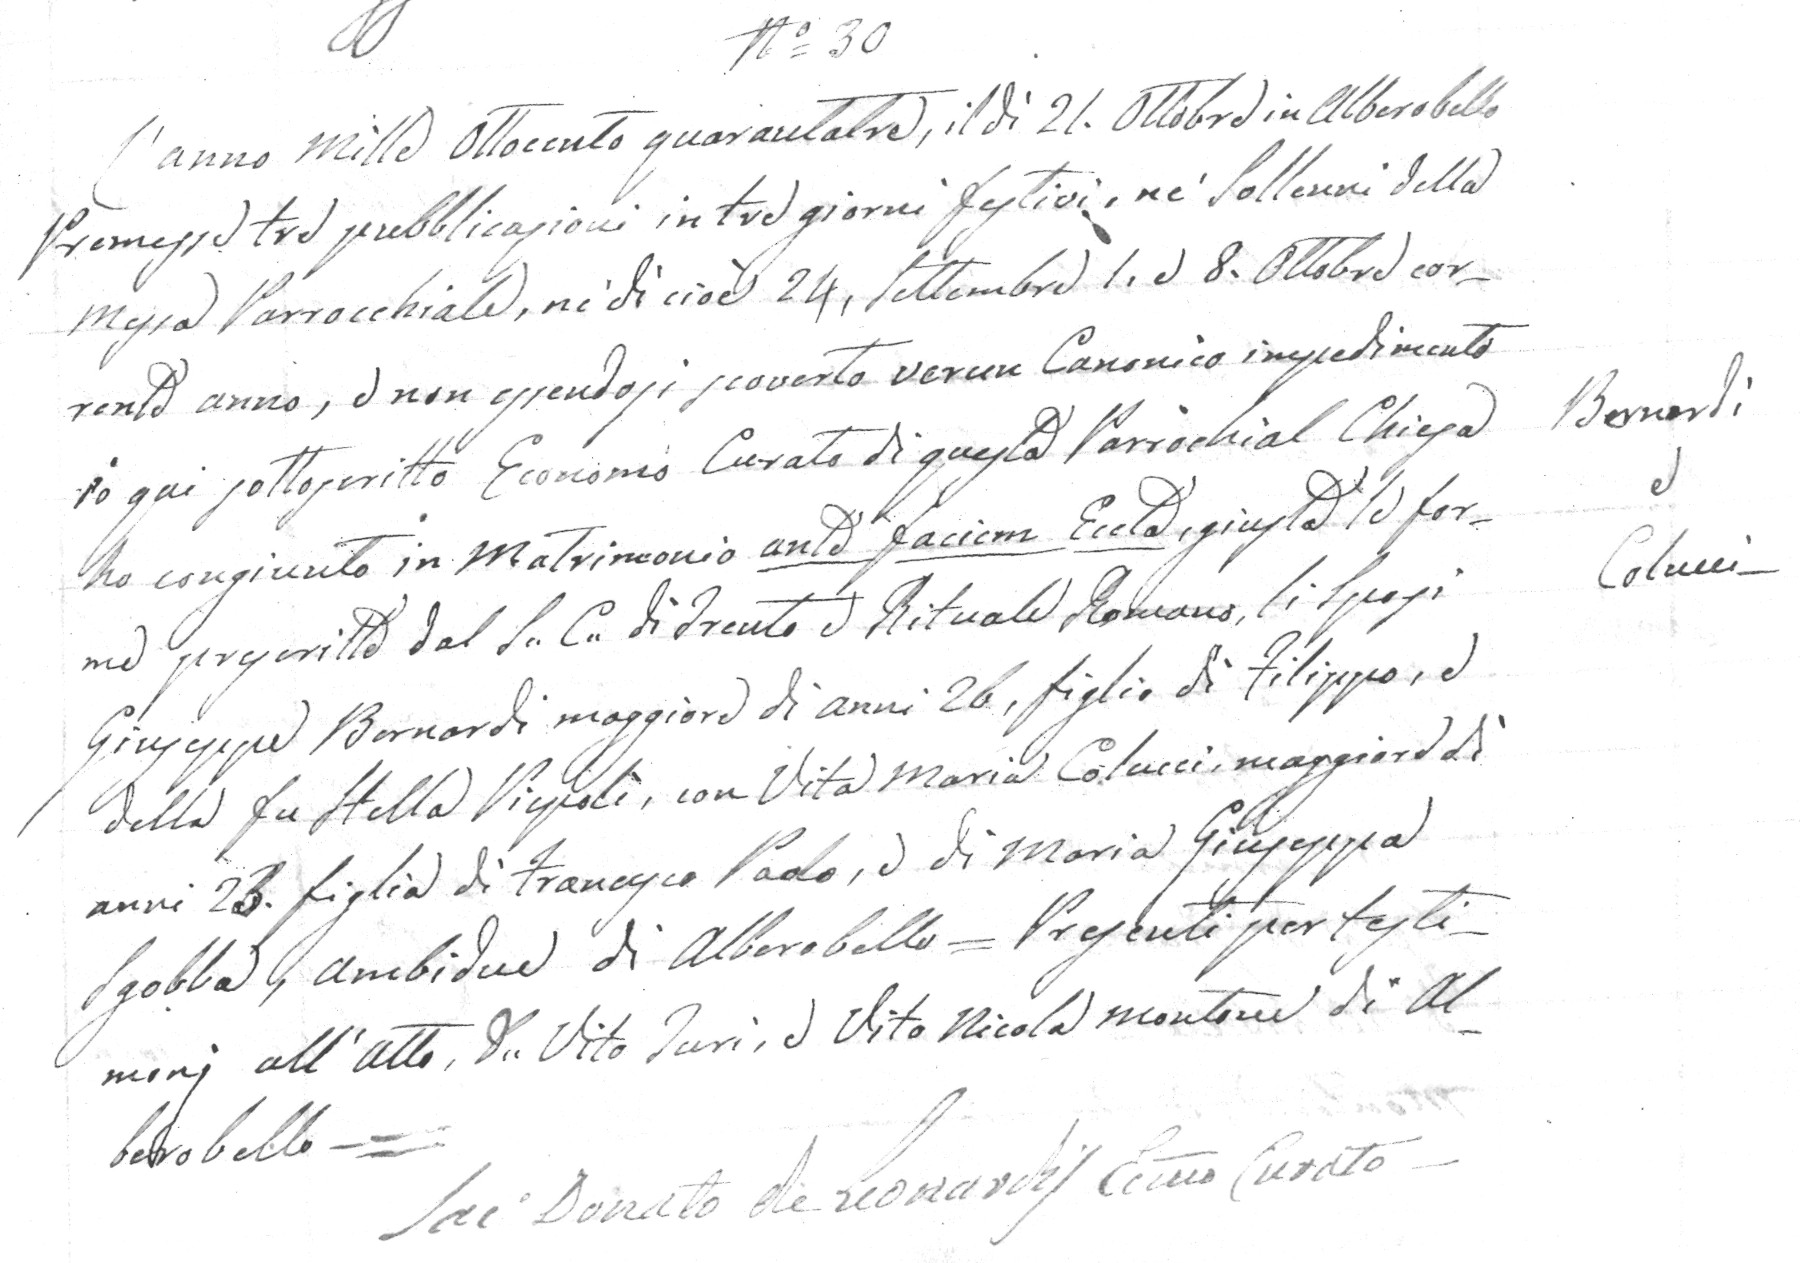 N.º 30
L'anno Mille Ottocento quarantatre, il dì 21. Ottobre in Alberobello
Premesse tre pubblicazioni in tre giorni festivi, ne' Sollenni della
Messa Parrocchiale, ne' dì cioè 24, Settembre 1. e 8. Ottobre cor-
rente anno, e non essendosi scoverto verun Canonico impedimento
io qui sottoscritto Economo Curato di questa Parrochial Chiesa
Bernardi
e
Colucci-
ho congiunto in Matrimonio ante faciem Eccle, giusta le for-
me prescritte dal S.. C.. di Trento e Rituale Romano, li Sposi
Giuseppe Bernardi maggiore di anni 26, figlio di Filippo, e
della fu Stella Pispoli, con Vita Maria Colucci, maggiore di
anni 23. figlia di Francesco Paolo, e di Maria Giuseppa
Sgobba, ambidue di Alberobello = Presenti per testi-
monj all'atto, D.. Vito Turi, e Vito Nicola Montone di Al-
berobello =
Sac. Donato de Leonardis Ecmo Curato -